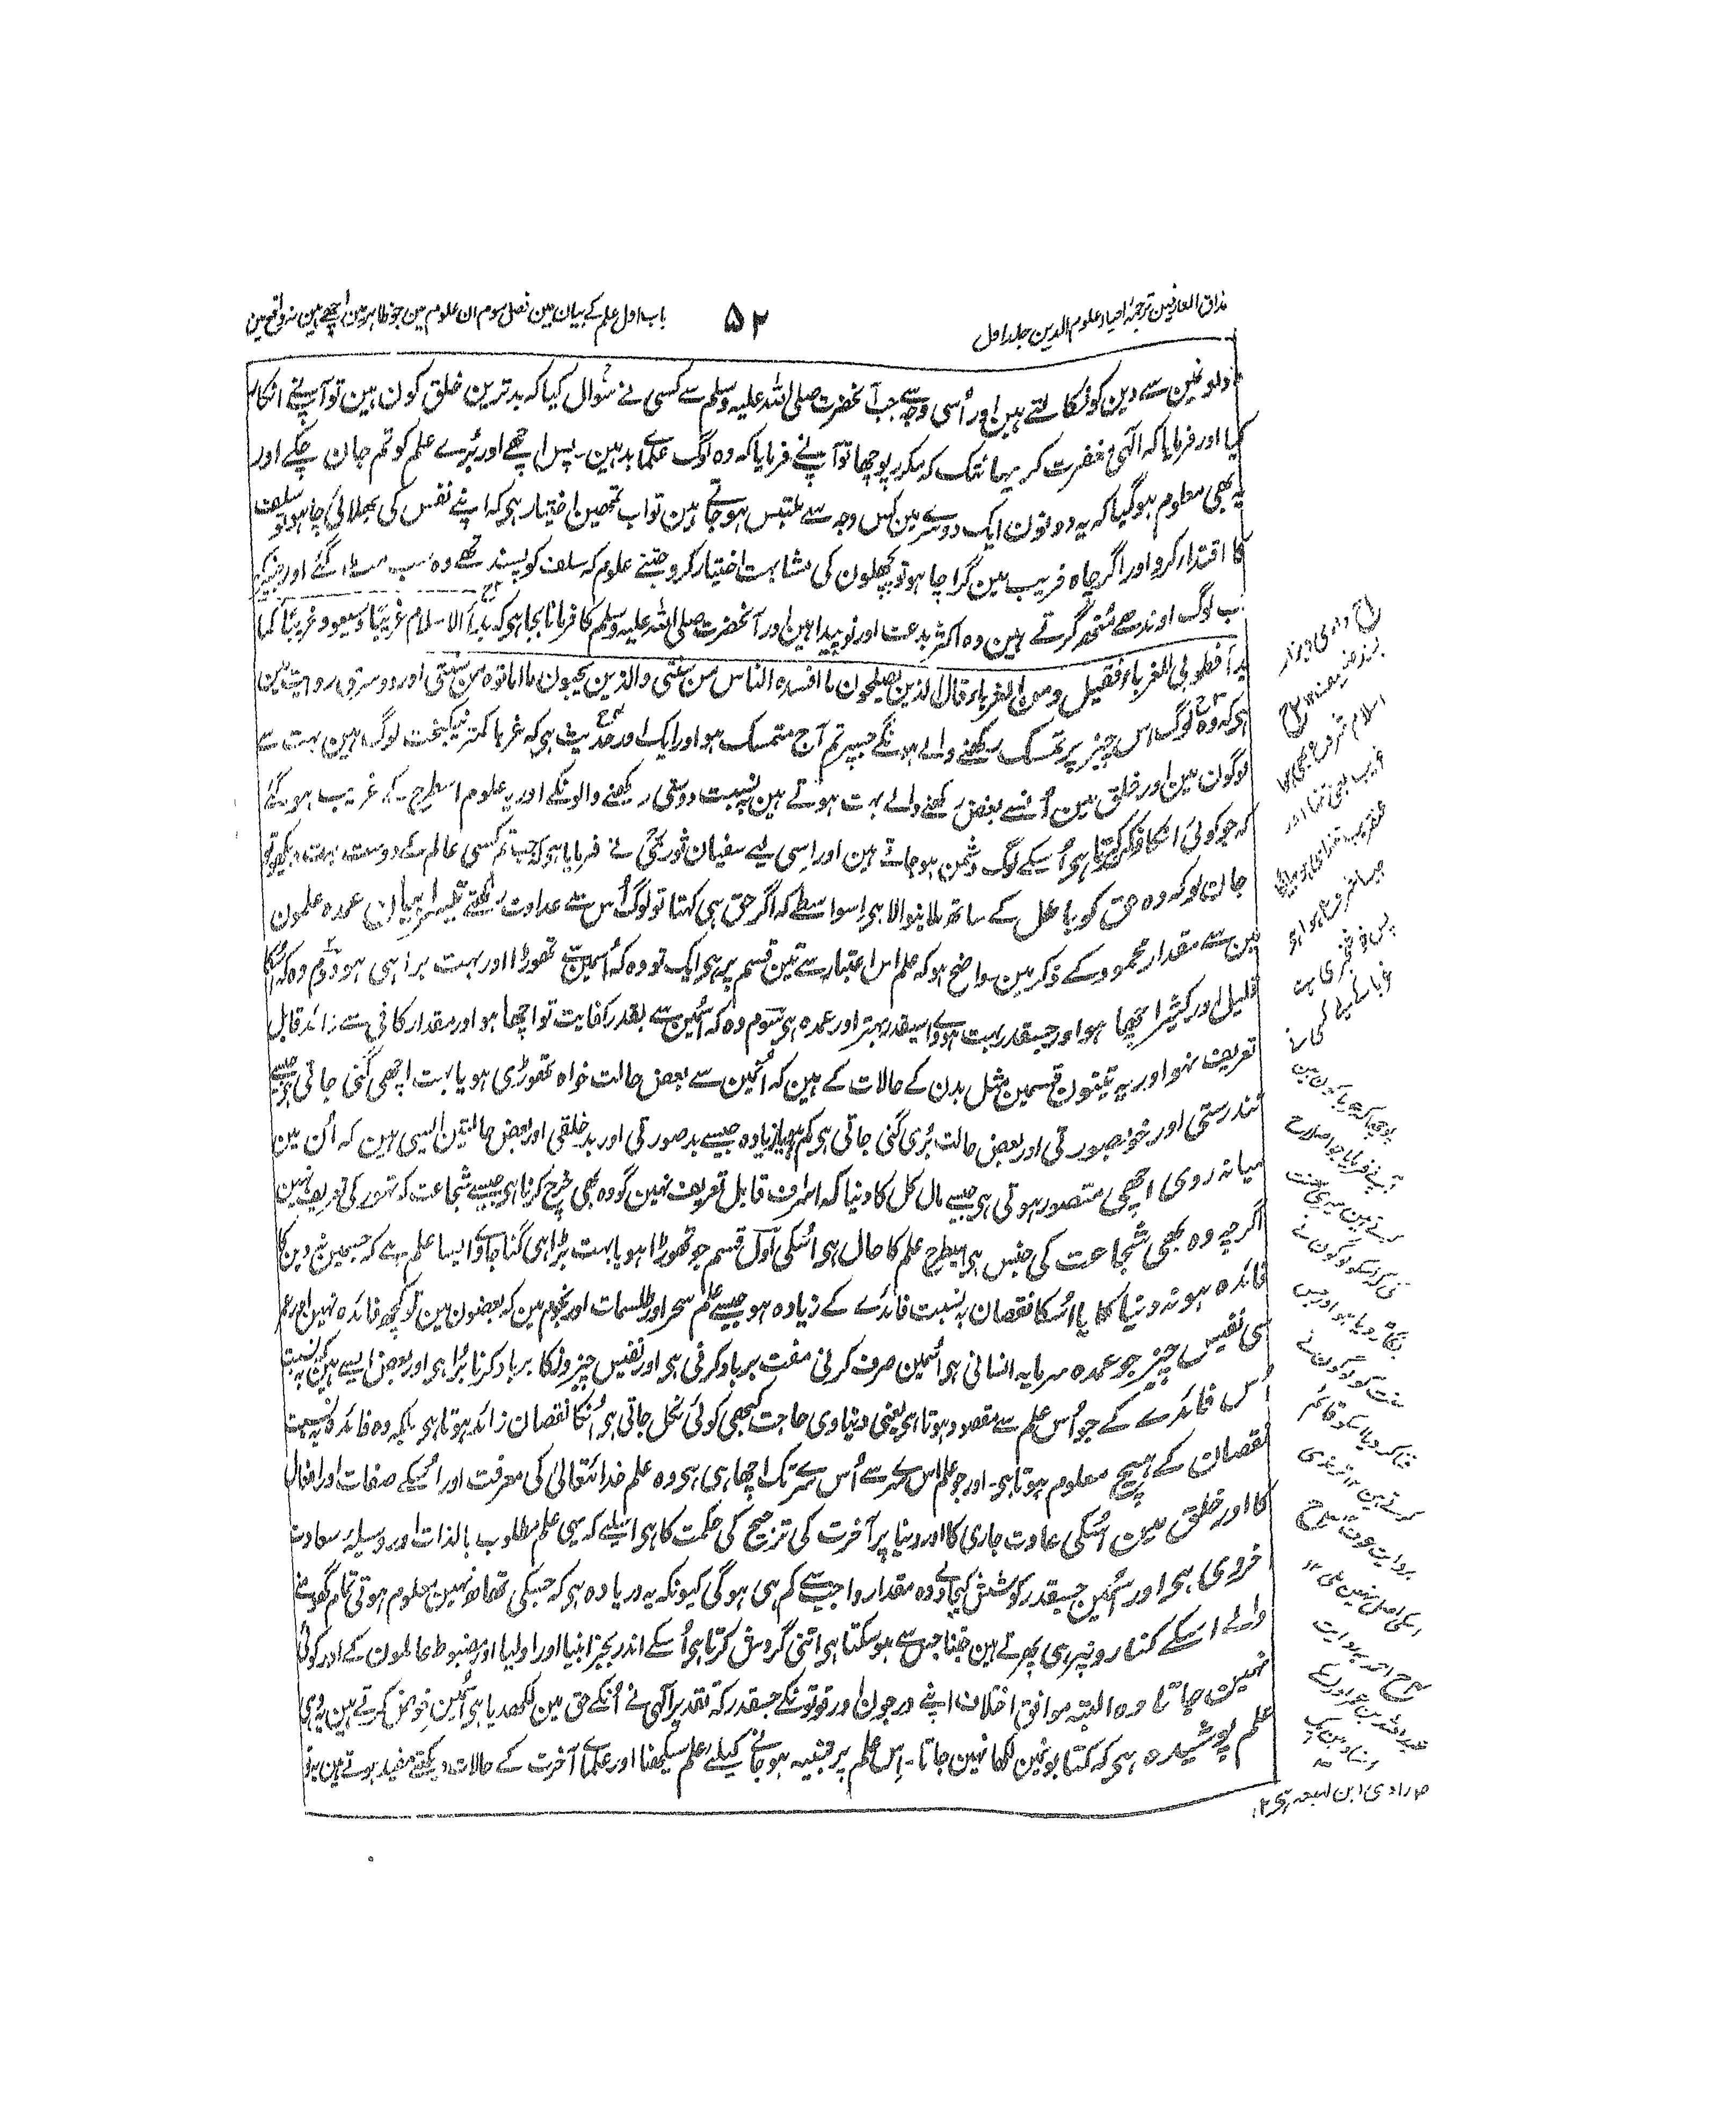 مذاق العارفین ترجمۂ احیاء علوم الدین جلد اول
۵۲
باب اول علم کے بیان مین فصل سوم ان علوم مین جو ظاہر مین اچھے ہین نہ واقع مین
دلونمین سے دین کو نکالتے ہین اور اُسی وجہ سے جب آنحضرت صلی اللہ علیہ وسلم سے کسی نے سوال کیا کہ بدترین خلق کون ہین تو آپنے انکار
کیا اور فرمایا کہ الٰہی مغفرت کر یہانتک کہ مکرر پوچھا تو آپنے فرمایا کہ وہ لوگ علماے بد ہین۔ پس اچھے اور بُرے علم کو تم جان چکے اور
یہ بھی معلوم ہوگیا کہ یہ دونون ایک دوسرے مین کس وجہ سے ملتبس ہوجاتے ہین تو اب تمھین اختیار ہی کہ اپنے نفس کی بھلائی چاہو تو سلف
کا اقتدار کرو اور اگر چاہ فریب مین گرا چاہو تو پچھلون کی مشابہت اختیار کرو جتنے علوم کہ سلف کو پسند تھے وہ سب مٹ گئے اور جنپر
سب لوگ اوندھے مُنھ گرتے ہین وہ اکثر بدعت اور نوپیدا ہین اور آنحضرت صلی اللہ علیہ وسلم کا فرمانا بجا ہی کہ بدأ الاسلام غریبًا وسیعود غریبًا کما
بدأ فطوبی للغرباء فقیل ومن الغرباء قال الذین یصلحون ما افسدہ الناس من سنتی والذین یحیون ما اماتوہ من سنتی اور دوسری روایت مین
ہی کہ وہ لوگ اس چیز پر تمسک رکھنے والے ہونگے جسپر تم آج متمسک ہو اور ایک اور حدیث ہی کہ غربا کمتر نیکبخت لوگ ہین بہت سے
لوگون مین اور خلق مین اُنسے بغض رکھنے والے بہت ہوتے ہین بہ نسبت دوستی رکھنے والونکے اور یہ علوم اسطرح کے غریب ہوگئے
کہ جو کوئی انکا ذکر کرتا ہی اُسکے لوگ دشمن ہوجاتے ہین اور اسی لیے سفیان ثوری نے فرمایا ہی کہ جب تم کسی عالم کے دوست بہت دیکھو تو
جان لو کہ وہ حق کو باطل کے ساتھ ملانیوالا ہی اسواسطے کہ اگر حق ہی کہتا تو لوگ اُس سے عداوت رکھتے تیسرا بیان عمدہ علمون
مین سے مقدار محمود کے ذکر مین۔ واضح ہو کہ علم اس اعتبار سے تین قسم پر ہی ایک تو وہ کہ اُسمین سے تھوڑا اور بہت برا ہی ہو دوم وہ کہ اُسکا
قلیل اور کثیر اچھا ہو اور جسقدر بہت ہووے اسیقدر بہتر اور عمدہ ہی سوم وہ کہ اُسمین سے بقدر کفایت تو اچھا ہو اور مقدار کافی سے زائد قابل
تعریف نہو اور یہ تینون قسمین مثل بدن کے حالات کے ہین کہ اُنمین سے بعض حالت خواہ تھوڑی ہو یا بہت اچھی گنی جاتی ہو جیسے
تندرستی اور خوبصورتی اور بعض حالت بُری گنی جاتی ہی کم ہو یا زیادہ جیسے بدصورتی اور بدخلقی اور بعض حالتین ایسی ہین کہ اُن مین
میانہ روی اچھی متصور ہوتی ہی جیسے مال کل کا دینا کہ اسراف قابل تعریف نہین گو وہ بھی خرچ کرنا ہی جیسے شجاعت کہ تہور کی تعریف نہین
اگرچہ وہ بھی شجاعت کی جنس ہی اسیطرح علم کا حال ہی اُسکی اول قسم جو تھوڑا ہو یا بہت بُرا ہی گنا جاوے ایسا علم ہے کہ جسمین نہ دین کا
فائدہ ہو نہ دنیا کا یا اُسکا نقصان بہ نسبت فائدے کے زیادہ ہو جیسے علم سحر اور طلسمات اور نجوم مین کہ بعضون مین تو کچھ فائدہ نہین اور عمر
سی نفیس چیز جو عمدہ سرمایہ انسانی ہی اُسمین صرف کرنی مفت برباد کرنی ہی اور نفیس چیزونکا برباد کرنا بُرا ہی اور بعض ایسے ہین کہ بہ نسبت
اُس فائدے کے جو اُس علم سے مقصود ہوتا ہی یعنی دنیاوی حاجت کبھی کوئی نکل جاتی ہی اُنکا نقصان زائد ہوتا ہی بلکہ وہ فائدہ بہ نسبت
نقصان کے ہیچ معلوم ہوتا ہی۔ اور جو علم اس سرے سے اُس سرے تک اچھا ہی ہی وہ علم خدائتعالیٰ کی معرفت اور اُسکے صفات اور افعال
کا اور خلق مین اُسکی عادت جاری کا اور دنیا پر آخرت کی ترجیح کی حکمت کا ہی اسلیے کہ یہی علم مطلوب بالذات اور وسیلۂ سعادت
خروی ہی اور اُسمین جسقدر کوشش کیجاوے وہ مقدار واجب سے کم ہی ہوگی کیونکہ یہ دریا وہ ہی کہ جسکی تھاہ نہین معلوم ہوتی تمام گھومنے
والے اسکے کنارونپر ہی پھرتے ہین جتنا جس سے ہوسکتا ہی اتنی گردش کرتا ہی اُسکے اندر بجز انبیا اور اولیا اور مضبوط عالمون کے اور کوئی
نہین جاتا وہ البتہ موافق اختلاف اپنے درجون اور قوتونکے جسقدر کہ تقدیر الٰہی نے اُنکے حق مین لکھدیا ہی اُسمین خوض کرتے ہین یہ وہی
علم پوشیدہ ہی کہ کتابونمین لکھا نہین جاتا۔ اس علم پر متنبہ ہوجانے کیلیے علم سیکھنا اور علماے آخرت کے حالات دیکھنے مفید ہوتے ہین یہ تو
اسلام شروع بھی ہوا
غریب یعنی تنہا اور
پس خوشخبری ہے
آپنے فرمایا جو اصلاح
کرتے ہین میری سنت
کی کہ جسکو لوگون نے
بگاڑ دیا ہو اور جس
سنت کو لوگون نے
فنا کردیا اسکو قائم
کرتے ہین ۱۲ ترمذی
اسکی اصل نہین ملی ۱۲
احمد بروایت
راوی ابن لہیعہ ہی ۱۲